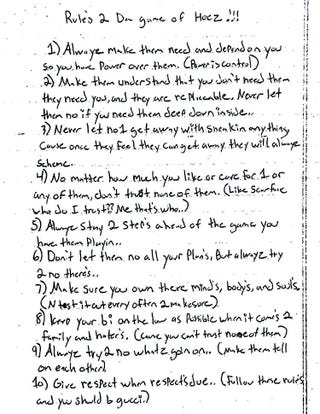 Rules 2 Da game of Hoez !!!
1) Always make them need and depend on you
so you have Power over them. (Power is control)
2) Make them understand that you don't need them
they need you, and they are replaceable. Never let
them no if you need them deep down inside..
3) Never let no 1 get away with Sneakin anything
Cause once they feel they can get away they will always
scheme..
4) No matter how much you like or care for 1 or
any of them, don't trust none of them. (Like Scarface
who do I trust?? Me that's who..)
5) Always stay 2 step's ahead of the game you
have them Playin..
6) Don't let them no all your Plan's, But always try
2 no there's..
7) Make sure you own there mind's, body's, and soul's
(N test it out every often 2 make sure)
8) Keep your bi on the low as Possible when it com's 2
family and hater's. (Cause you can't trust none of them)
9) Always try 2 no whatz goin on.. (Make them tell
on each other)
10) Give respect when respect's due. (Follow these rule's
and you should b gucci.)